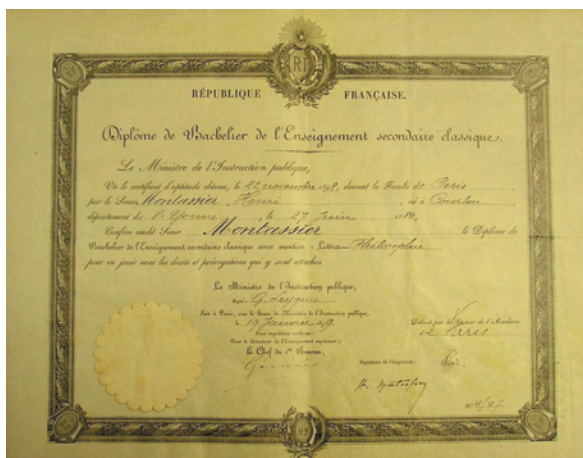 RF
RÉPUBLIQUE FRANÇAISE.
Diplôme de Bachelier de l'Enseignement secondaire classique.
Le Ministre de l'Instruction publique,
Vu le certificat d'aptitude obtenu, le 22 novembre 189, devant la Faculté de Paris
par le Sieur Montassier, Henri, né à Courlon
département de l'Yonne, le 27 Juin 1880,
Confère audit Sieur Montassier le Diplôme de
Bachelier de l'Enseignement secondaire classique avec mention : Lettres- Philosophie
pour en jouir avec les droits et prérogatives qui y sont attachés.
Le Ministre de l'Instruction publique,
Signé G. Leygues
Fait à Paris, sous le Sceau du Ministère de l'Instruction publique,
le 19 Janvier
Pour expédition conforme :
Le Chef du Bureau,
Délivré par le Recteur de l'Académie
de Paris
Signature de l'impétrant :